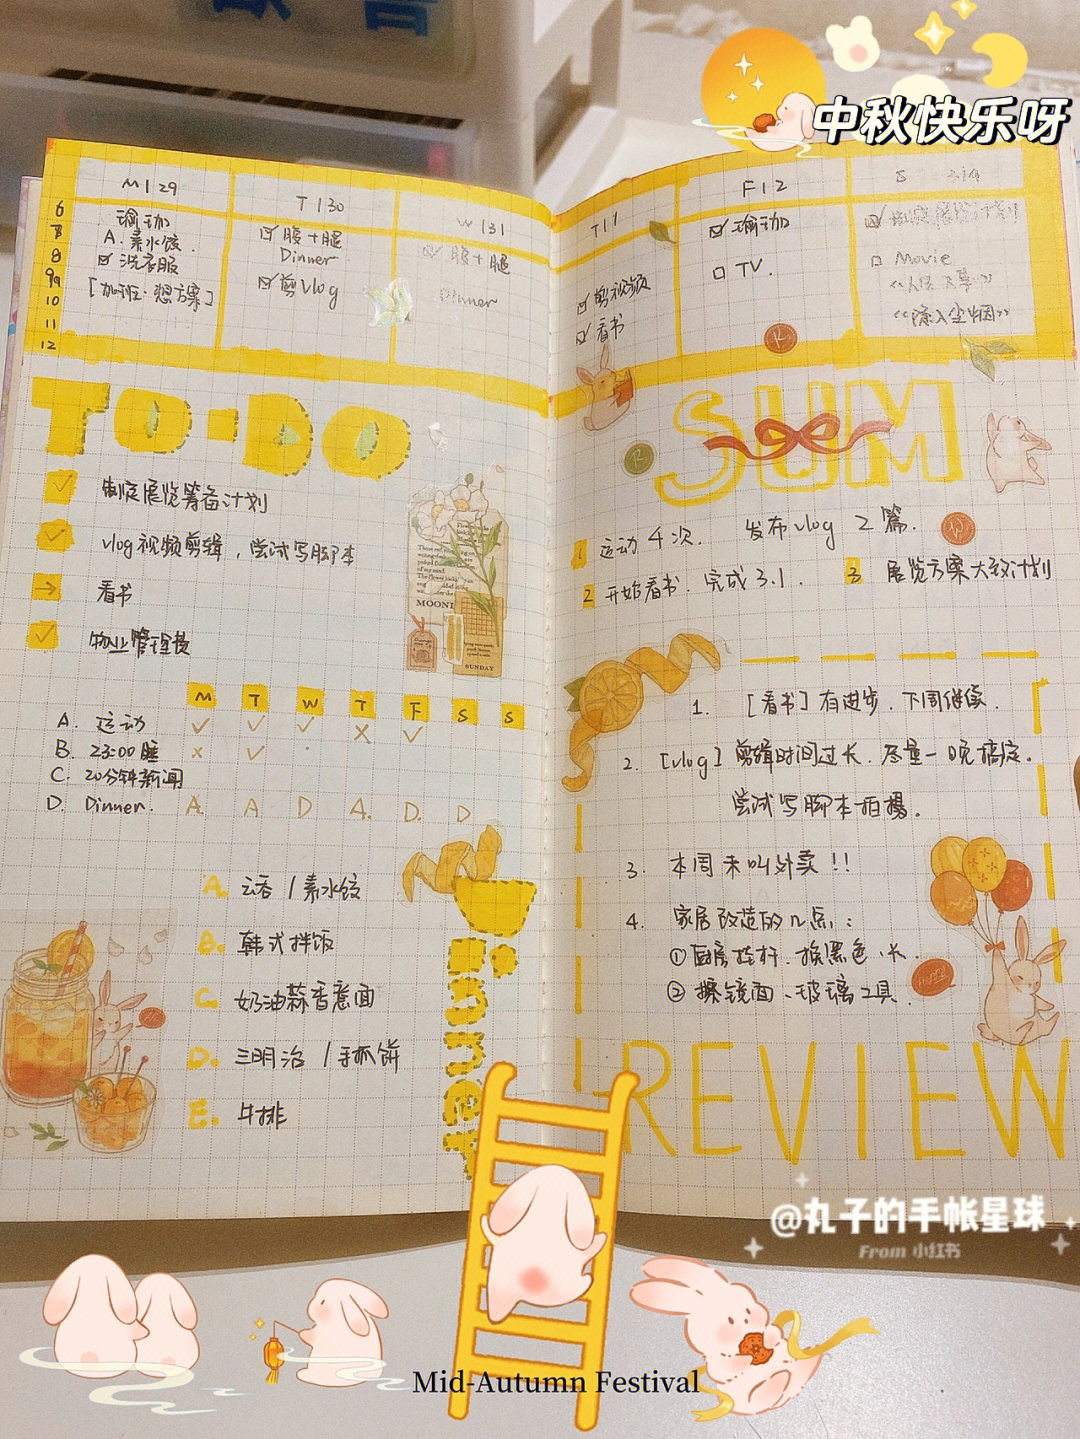 中秋快乐呀
M | 29
T | 30
W | 31
T | 1
F | 2
S
6
8
9
10
11
12
瑜珈
A. 素水饺.
洗衣服
[加班·想方案]
腹+腿
Dinner
剪vlog
腹+腿
Dinner
剪视频
看书
瑜珈
TV.
Movie
《隐入尘烟》
TO-DO
制定展览筹备计划
vlog视频剪辑，尝试写脚本
看书
物业管理费
MOON
SUNDAY
M T W T F S S
A. 运动
B. 23:00睡
C. 20分钟新闻
D. Dinner. A. A D A. D. D
Dinner
A. 云吞 / 素水饺
B. 韩式拌饭
C. 奶油蒜香意面
D. 三明治 / 手抓饼
E. 牛排
SUM
1 运动 4 次. 发布vlog 2 篇.
2 开始看书. 完成 3.1. 3 展览方案大致计划
1. [看书] 有进步. 下周继续.
2. [vlog] 剪辑时间过长. 尽量一晚搞定.
尝试写脚本拍摄.
3. 本周未叫外卖 !!
4. 家居改造的几点:
① 厨房拉杆. 换黑色、长.
② 擦镜面、玻璃工具.
REVIEW
@丸子的手帐星球
From 小红书
Mid-Autumn Festival